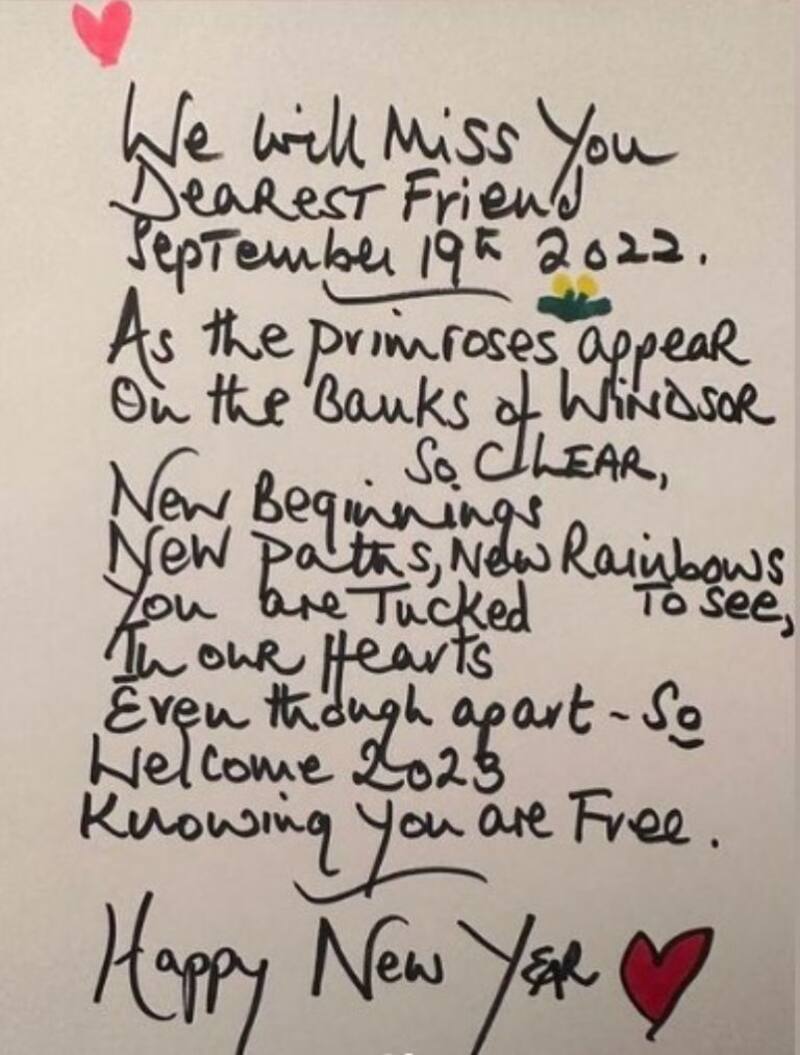 We will Miss You
DeaRest Friend
September 19th 2022.
As the primroses appeaR
On the Banks of WiNDSOR
So CLEAR,
New Beginnings
New paths, New Rainbows
To see,
You are Tucked
In ouR Hearts
Even though apart ~ So
Welcome 2023
Knowing you are Free.
Happy New YEAR